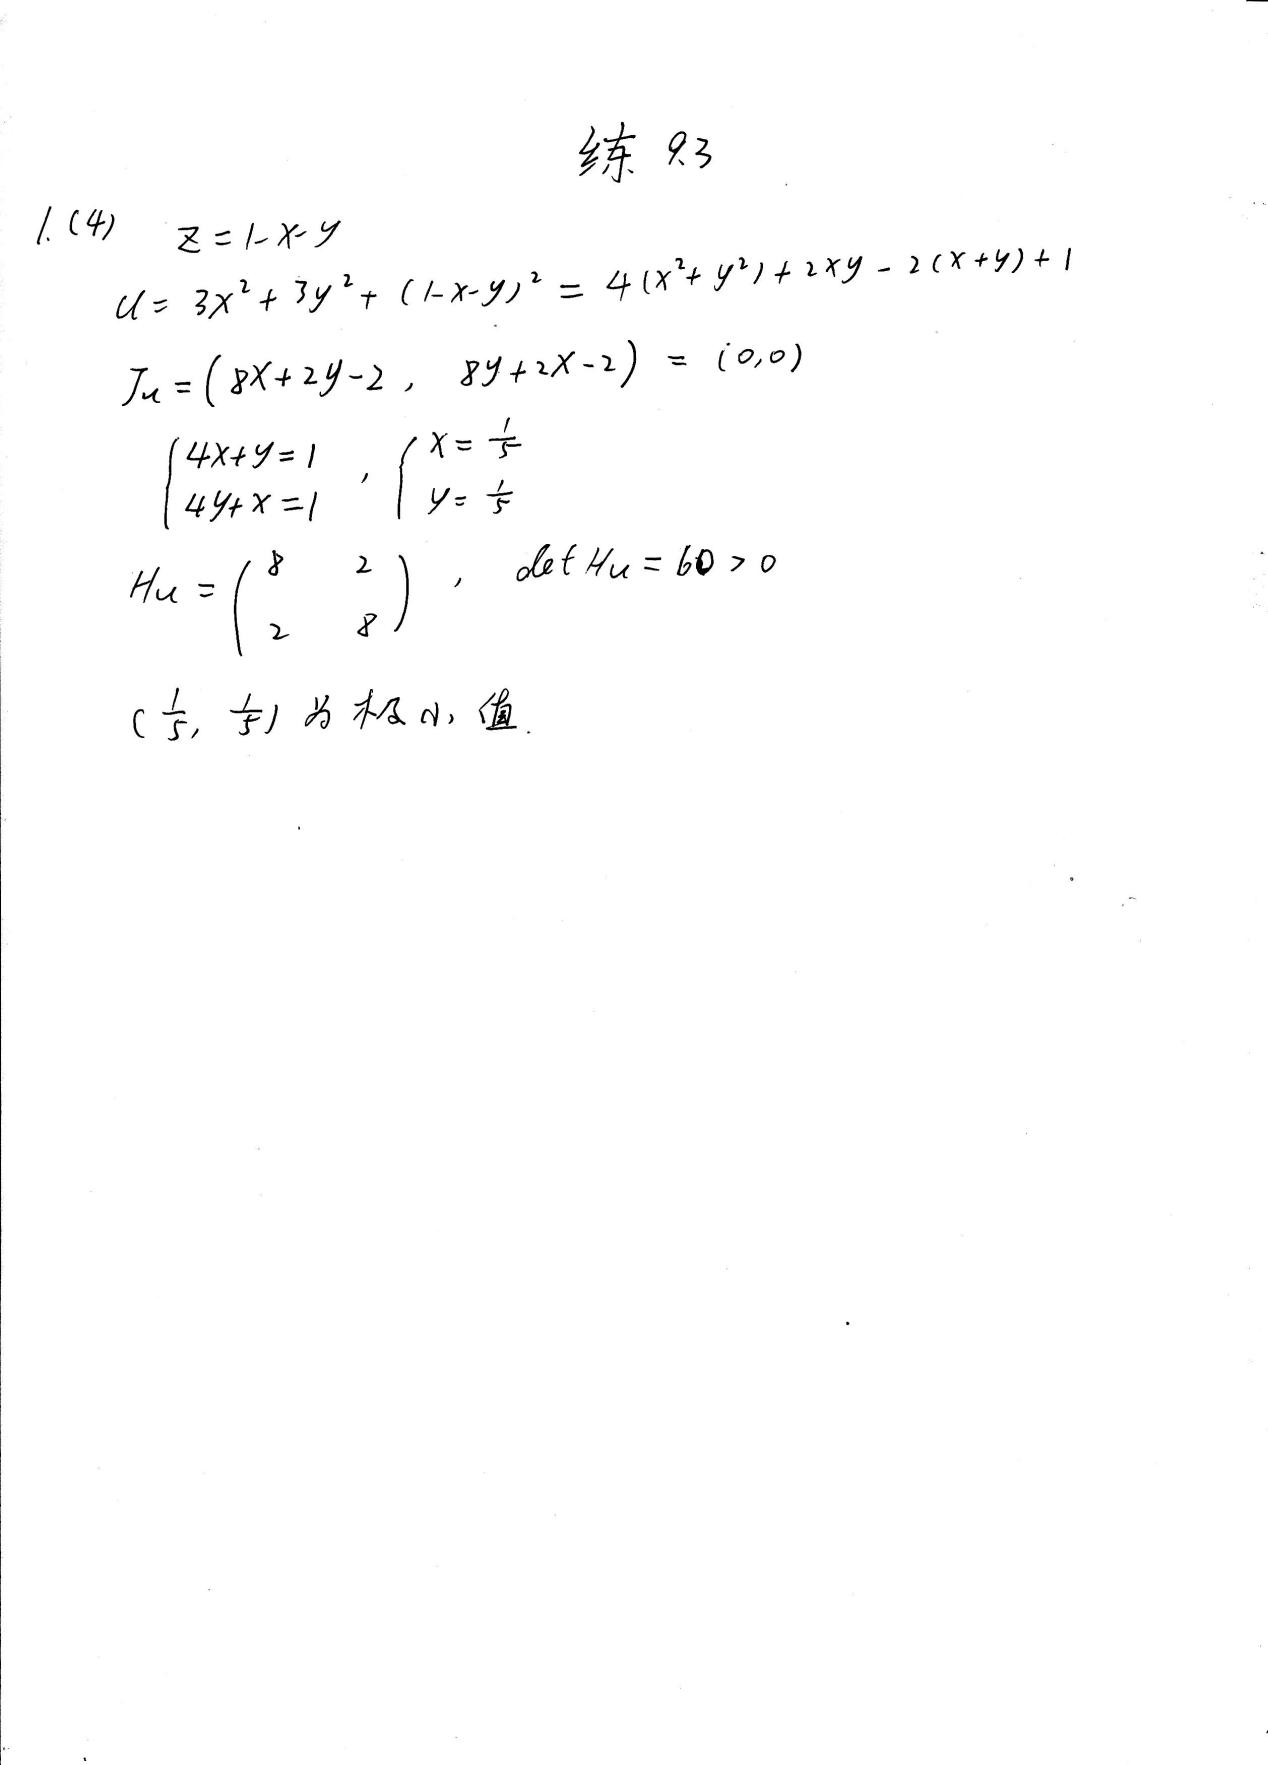 练 9.3
1. (4) z = 1-x-y
u = 3x² + 3y² + (1-x-y)² = 4(x²+y²) + 2xy - 2(x+y) + 1
Ju = (8x+2y-2, 8y+2x-2) = (0,0)
{4x+y=1, {x=1/5
{4y+x=1 {y=1/5
Hu = (8 2
2 8), det Hu = 60 > 0
(1/5, 1/5) 为极小值.